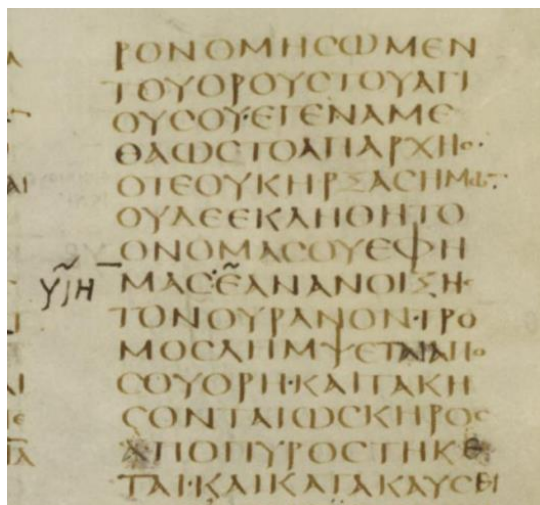 ΡΟΝΟΜΗϹΩΜΕΝ
ΤΟΥΟΡΟΥϹΤΟΥΑΓΙ
ΟΥϹΟΥ·ΕΓΕΝΑΜΕ
ΘΑΩϹΤΟΑΠΑΡΧΗϹ·
ΟΤΕΟΥΚΗΡΞΑϹΗΜΩ
ΟΥΔΕΕΚΛΗΘΗΤΟ
ΟΝΟΜΑϹΟΥΕΦΗ
ΜΑϹ·ΕΑΝΑΝΟΙΞΗϹ
ΤΟΝΟΥΡΑΝΟΝ·ΤΡΟ
ΜΟϹΛΗΜΨΕΤΑΙΑΠΟ
ϹΟΥΟΡΗ·ΚΑΙΤΑΚΗ
ϹΟΝΤΑΙΩϹΚΗΡΟϹ
ΑΠΟΠΥΡΟϹΤΗΚΕ
ΤΑΙ·ΚΑΙΚΑΤΑΚΑΥϹΕΙ